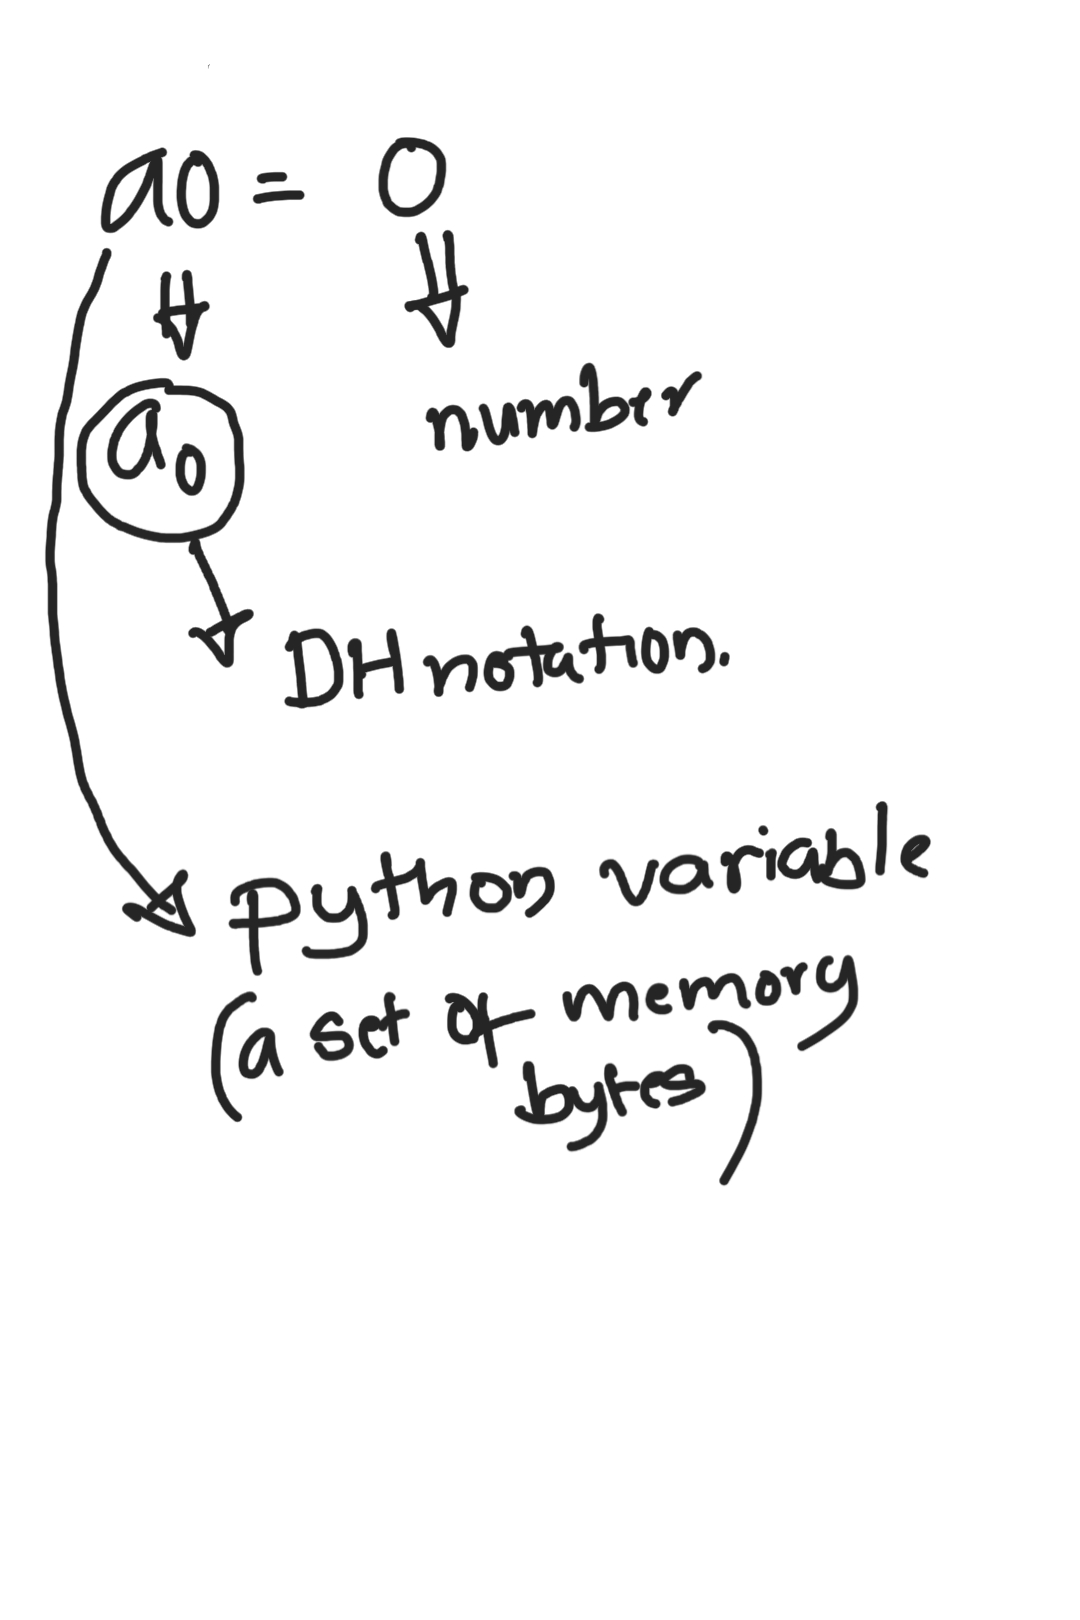 a0 = 0
number
a0
DH notation.
python variable
(a set of memory
bytes)